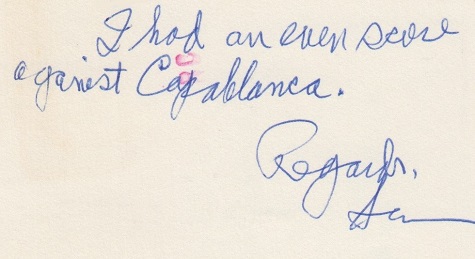 I had an even score
against Capablanca.
Regards,